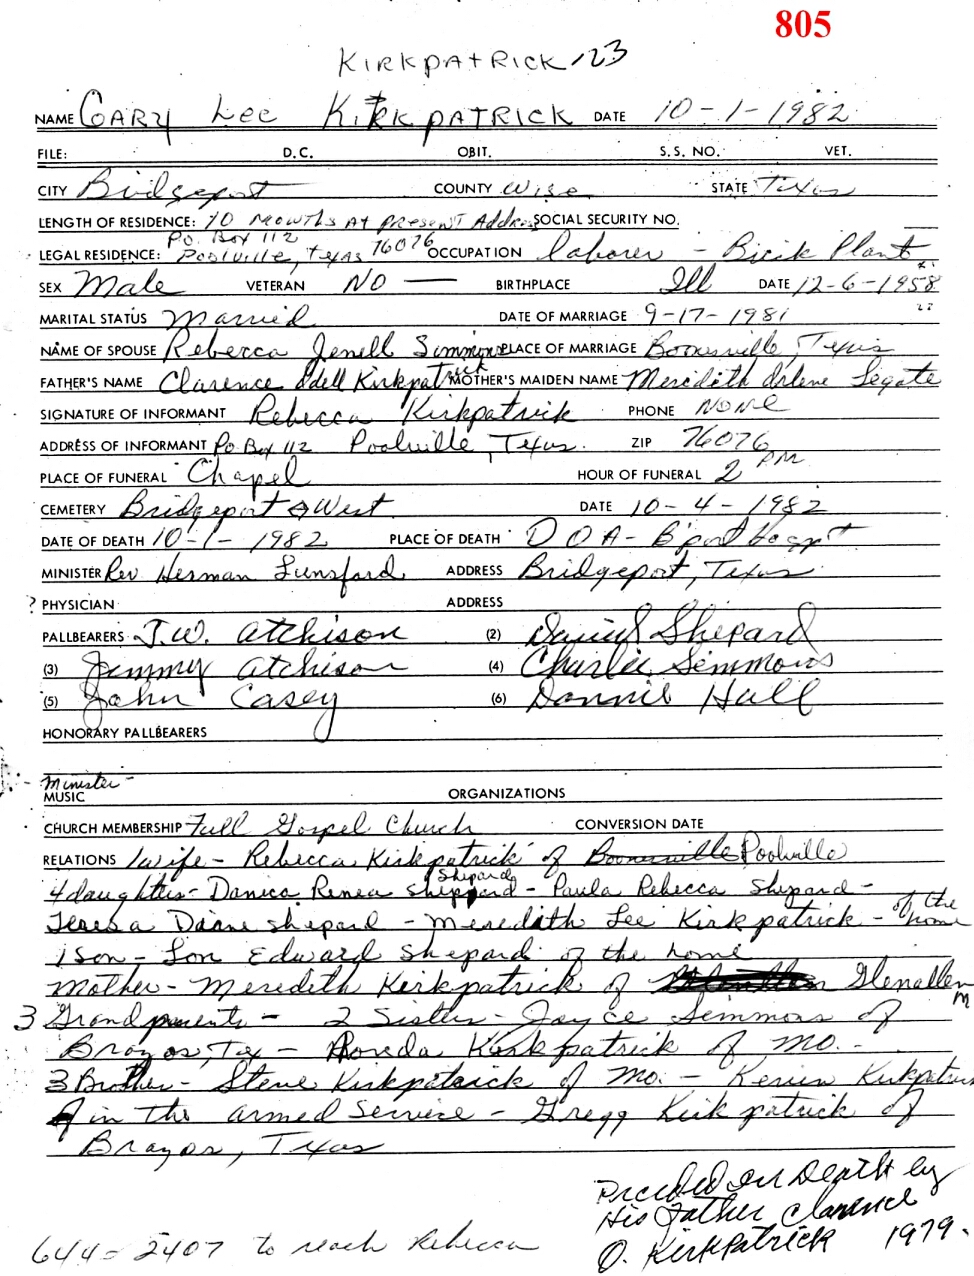 805
KIRKPATRICK 123
NAME GARY Lee KIRKPATRICK DATE 10-1-1982
FILE: D.C. OBIT. S.S. NO. VET.
CITY Bridgeport COUNTY Wise STATE Texas
LENGTH OF RESIDENCE: 10 months At present Address SOCIAL SECURITY NO.
P.O. Box 112
LEGAL RESIDENCE: Poolville, Texas 76076 OCCUPATION laborer - Brick Plant
SEX Male VETERAN NO — BIRTHPLACE Ill DATE 12-6-1958
MARITAL STATUS Married DATE OF MARRIAGE 9-17-1981
NAME OF SPOUSE Rebecca Jenell Simmons PLACE OF MARRIAGE Boonesville, Texas
FATHER'S NAME Clarence Odell Kirkpatrick MOTHER'S MAIDEN NAME Meredith Arlene Legate
SIGNATURE OF INFORMANT Rebecca Kirkpatrick PHONE NONE
ADDRESS OF INFORMANT Po Box 112 Poolville, Texas. ZIP 76076
PLACE OF FUNERAL Chapel HOUR OF FUNERAL 2 PM
CEMETERY Bridgeport West DATE 10-4-1982
DATE OF DEATH 10-1-1982 PLACE OF DEATH DOA - B'port Hospt
MINISTER Rev Herman Lunsford ADDRESS Bridgeport, Texas
? PHYSICIAN ADDRESS
PALLBEARERS J.W. Atchison (2) David Shepard
(3) Jimmy Atchison (4) Charlie Simmons
(5) John Casey (6) Donnie Hall
HONORARY PALLBEARERS
Minister -
MUSIC ORGANIZATIONS
CHURCH MEMBERSHIP Full Gospel Church CONVERSION DATE
RELATIONS 1 wife - Rebecca Kirkpatrick of Boonesville Poolville
Shepard
4 daughters - Danica Renea - Paula Rebecca Shepard -
Teresa Diane Shepard - Meredith Lee Kirkpatrick - of the home
1 Son - Lon Edward Shepard of the home
Mother - Meredith Kirkpatrick of Glenallen M
3 Grandparents - 2 Sister - Joyce Simmons of
Brazos, Tex - Roneda Kirkpatrick of Mo. -
3 Brother - Steve Kirkpatrick of Mo. - Kevin Kirkpatrick
in the armed Service - Gregg Kirkpatrick of
Brazos, Texas
Preceded in Death by
His Father Clarence
O. Kirkpatrick 1979.
644-2407 to reach Rebecca